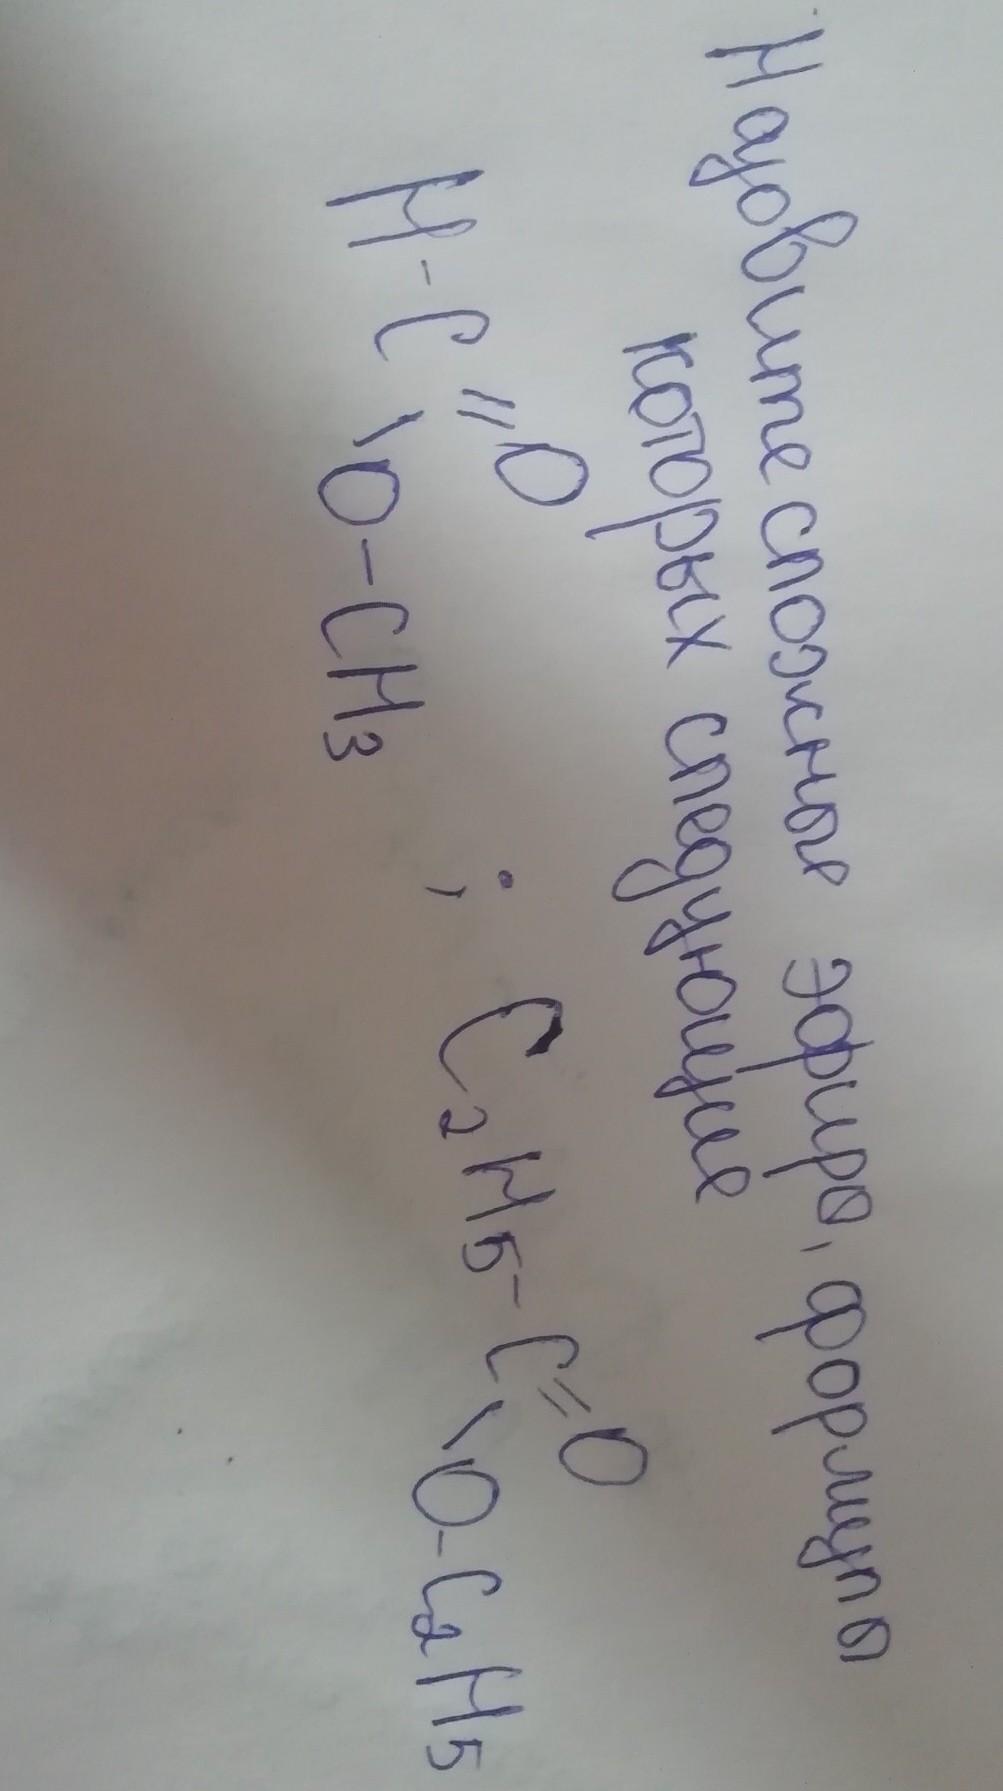 Назовите сложные эфиры, формулы
которых следующие
H-C=O
\O-CH3 ; C2H5-C=O
\O-C2H5